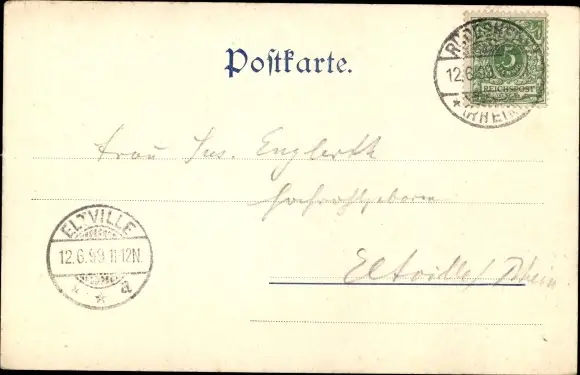 Postkarte.
RÜDESHEIM
5
12.6.99
REICHSPOST
(RHEIN)
Frau Jus. Englerth
Hochwohlgeboren
ELTVILLE
12.6.99.11-12N.
* * a
Eltville/Rhein